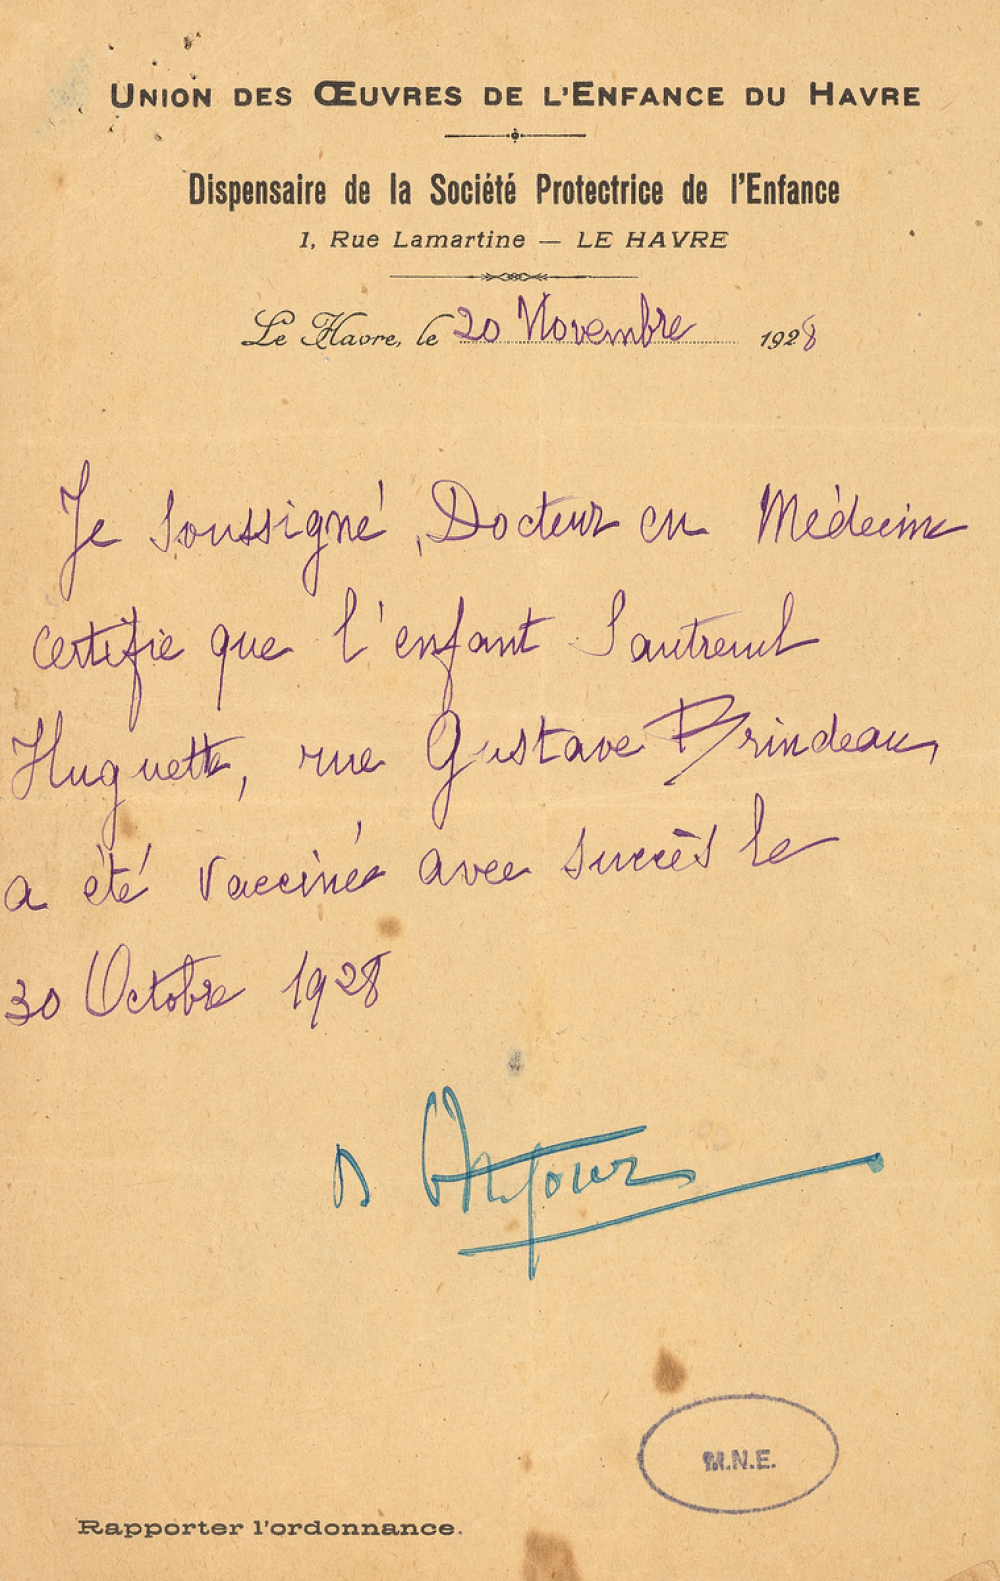 UNION DES ŒUVRES DE L'ENFANCE DU HAVRE
Dispensaire de la Société Protectrice de l'Enfance
1, Rue Lamartine — LE HAVRE
Le Havre, le 20 Novembre 1928
Je soussigné, Docteur en Médecine
certifie que l'enfant Sautreuil
Huguette, rue Gustave Brindeau,
a été vaccinée avec succès le
30 Octobre 1928
M.N.E.
Rapporter l'ordonnance.